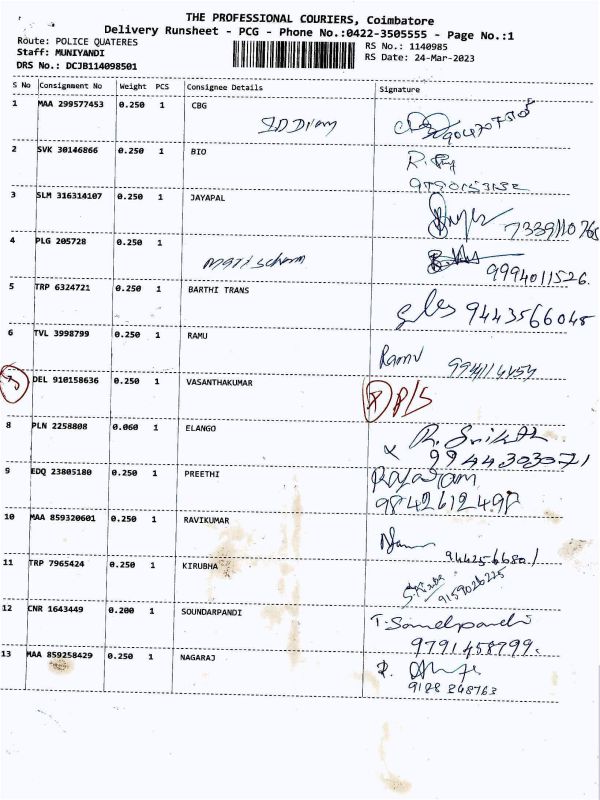 THE PROFESSIONAL COURIERS, Coimbatore
Delivery Runsheet - PCG - Phone No.:0422-3505555 - Page No.:1
Route: POLICE QUATERES
RS No.: 1140985
Staff: MUNIYANDI
RS Date: 24-Mar-2023
DRS No.: DCJB114098501
S No Consignment No Weight PCS Consignee Details Signature
1 MAA 299577453 0.250 1 CBG
2 SVK 30146866 0.250 1 BIO
3 SLM 316314107 0.250 1 JAYAPAL
7339110765
4 PLG 205728 0.250 1
9994011526.
5 TRP 6324721 0.250 1 BARTHI TRANS
9443566048
6 TVL 3998799 0.250 1 RAMU
Ramu
DEL 910158636 0.250 1 VASANTHAKUMAR
P/S
8 PLN 2258808 0.060 1 ELANGO
9944303071
9 EDQ 23805180 0.250 1 PREETHI
Rajaram
9842612498
10 MAA 859320601 0.250 1 RAVIKUMAR
9442566801
11 TRP 7965424 0.250 1 KIRUBHA
9159026225
12 CNR 1643449 0.200 1 SOUNDARPANDI
9791458799.
13 MAA 859258429 0.250 1 NAGARAJ